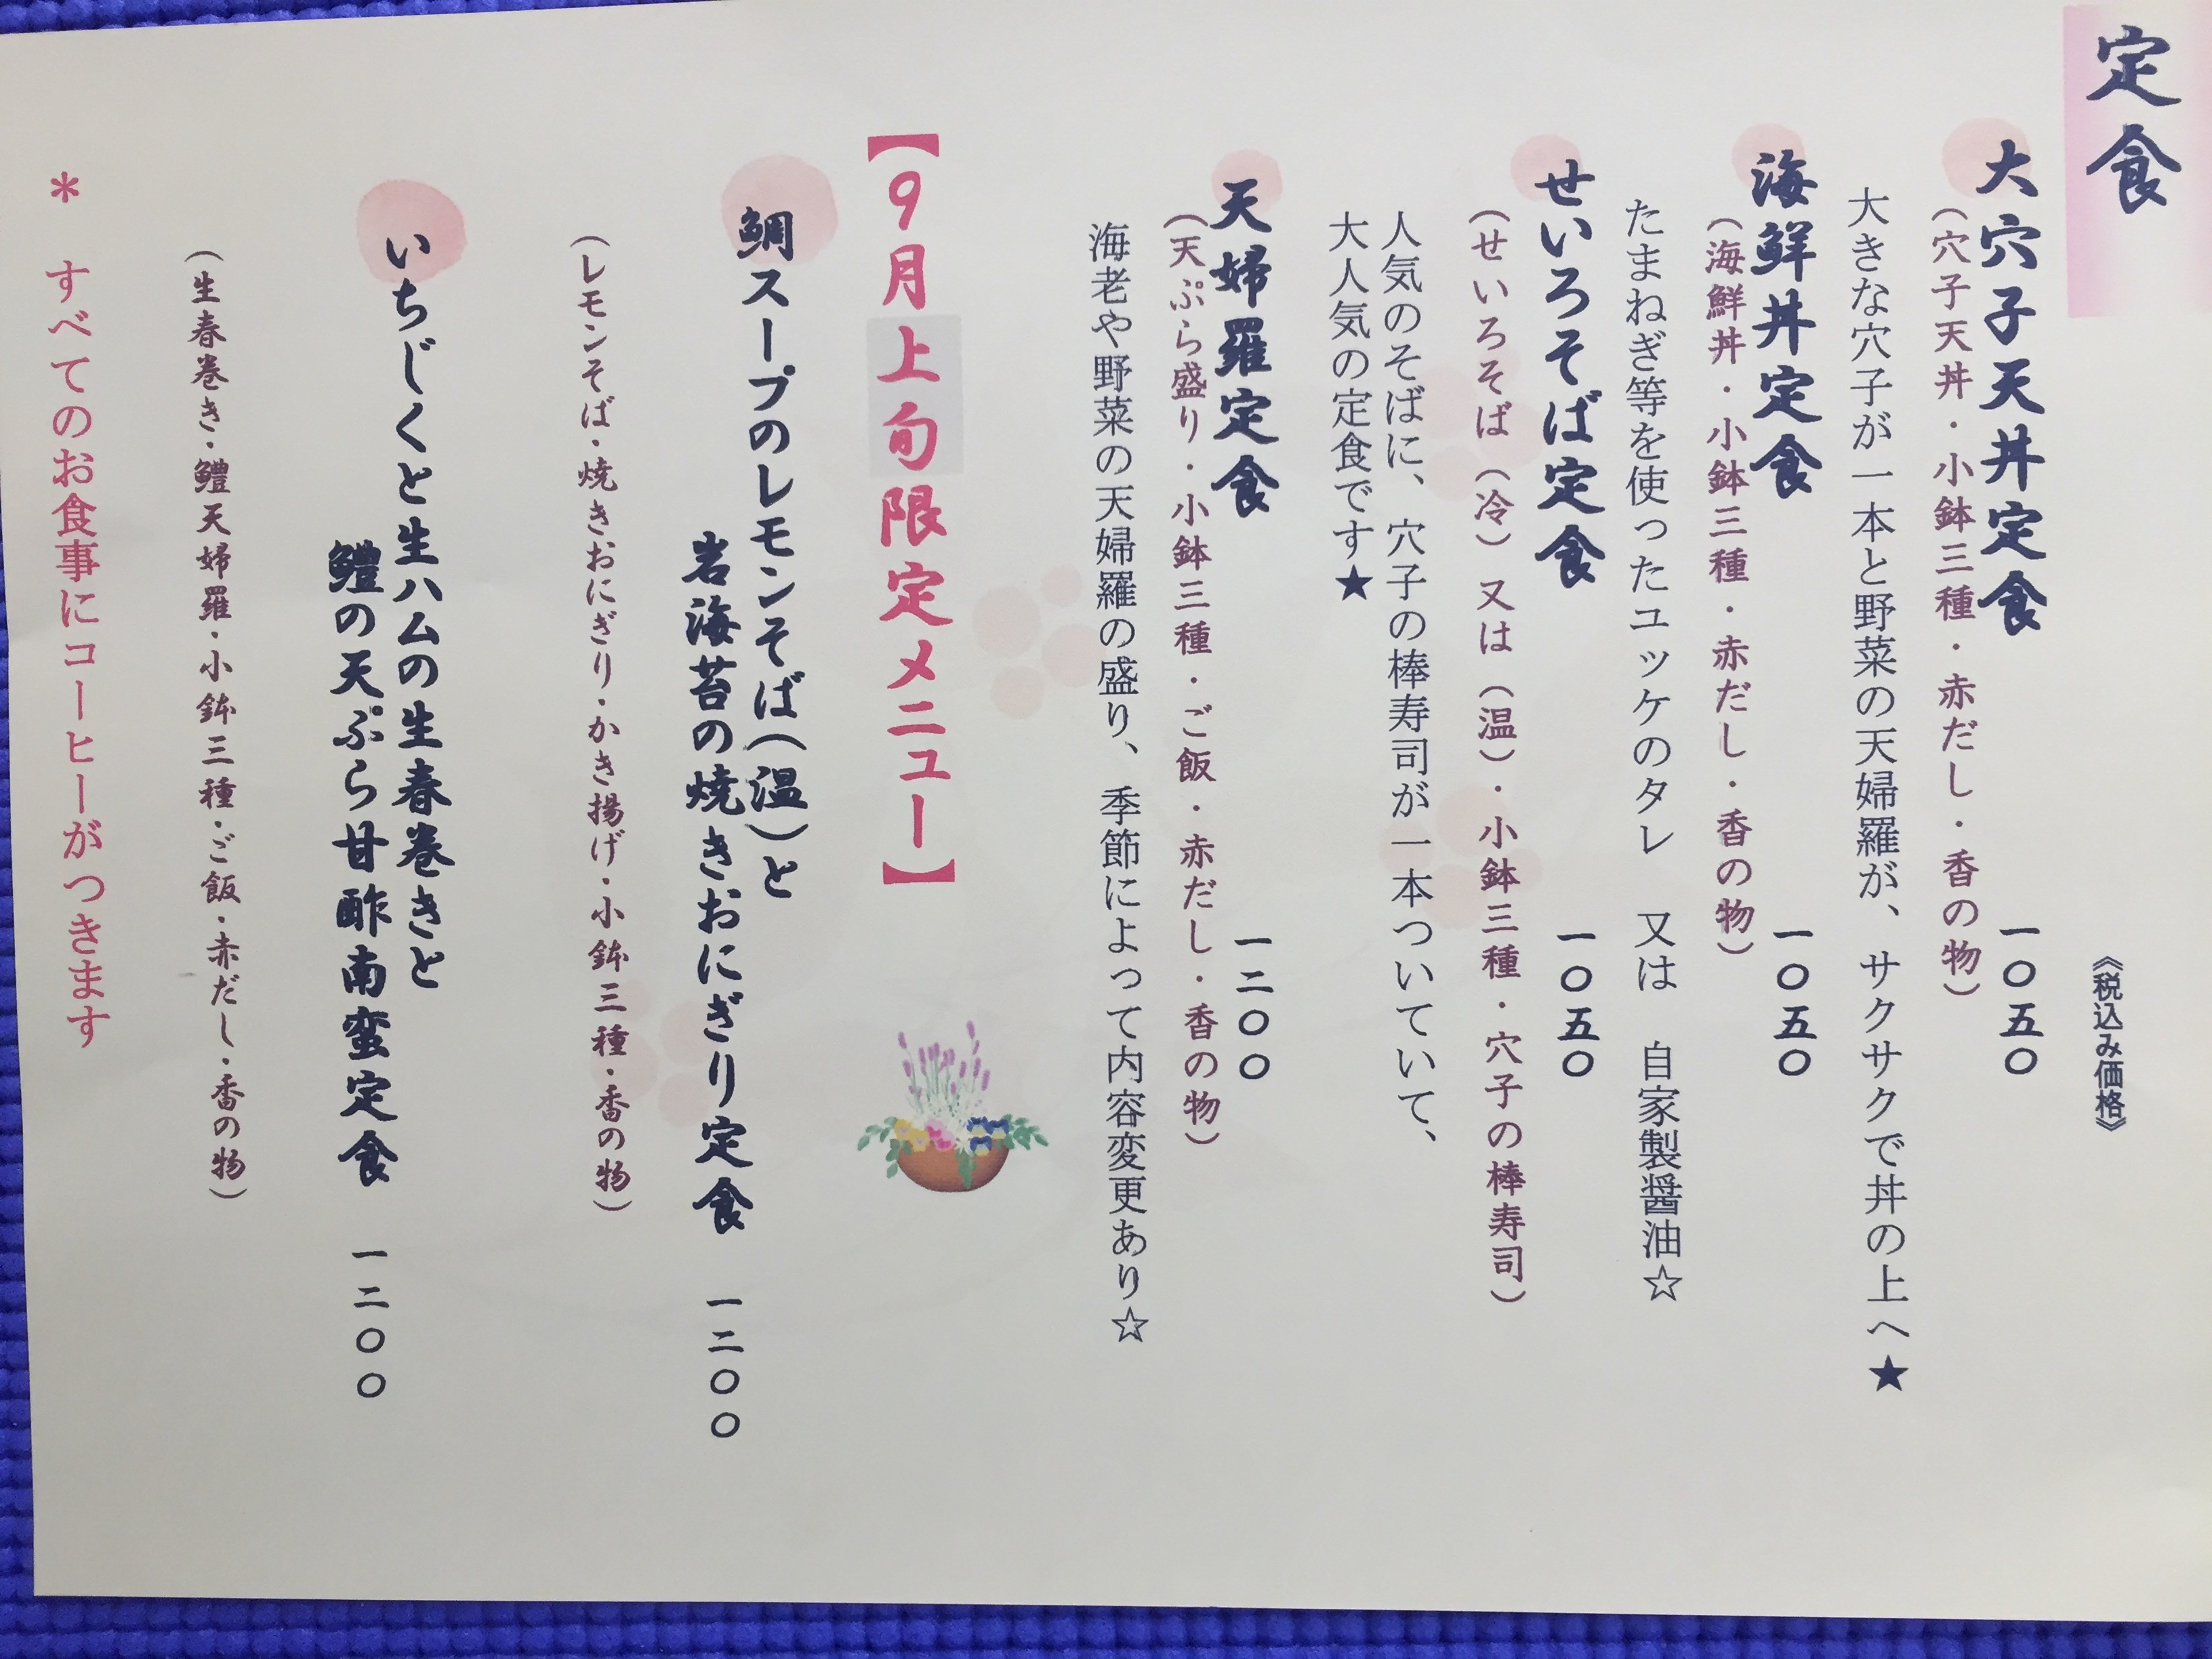 定食
《税込み価格》
大穴子天丼定食 一〇五〇
(穴子天丼・小鉢三種・赤だし・香の物)
大きな穴子が一本と野菜の天婦羅が、サクサクで丼の上へ★
海鮮丼定食 一〇五〇
(海鮮丼・小鉢三種・赤だし・香の物)
たまねぎ等を使ったユッケのタレ 又は 自家製醤油☆
せいろそば定食 一〇五〇
(せいろそば(冷)又は(温)・小鉢三種・穴子の棒寿司)
人気のそばに、穴子の棒寿司が一本ついていて、
大人気の定食です★
天婦羅定食 一二〇〇
(天ぷら盛り・小鉢三種・ご飯・赤だし・香の物)
海老や野菜の天婦羅の盛り、季節によって内容変更あり☆
【9月上旬限定メニュー】
鯛スープのレモンそば(温)と
岩海苔の焼きおにぎり定食 一二〇〇
(レモンそば・焼きおにぎり・かき揚げ・小鉢三種・香の物)
いちじくと生ハムの生春巻きと
鱧の天ぷら甘酢南蛮定食 一二〇〇
(生春巻き・鱧天婦羅・小鉢三種・ご飯・赤だし・香の物)
* すべてのお食事にコーヒーがつきます